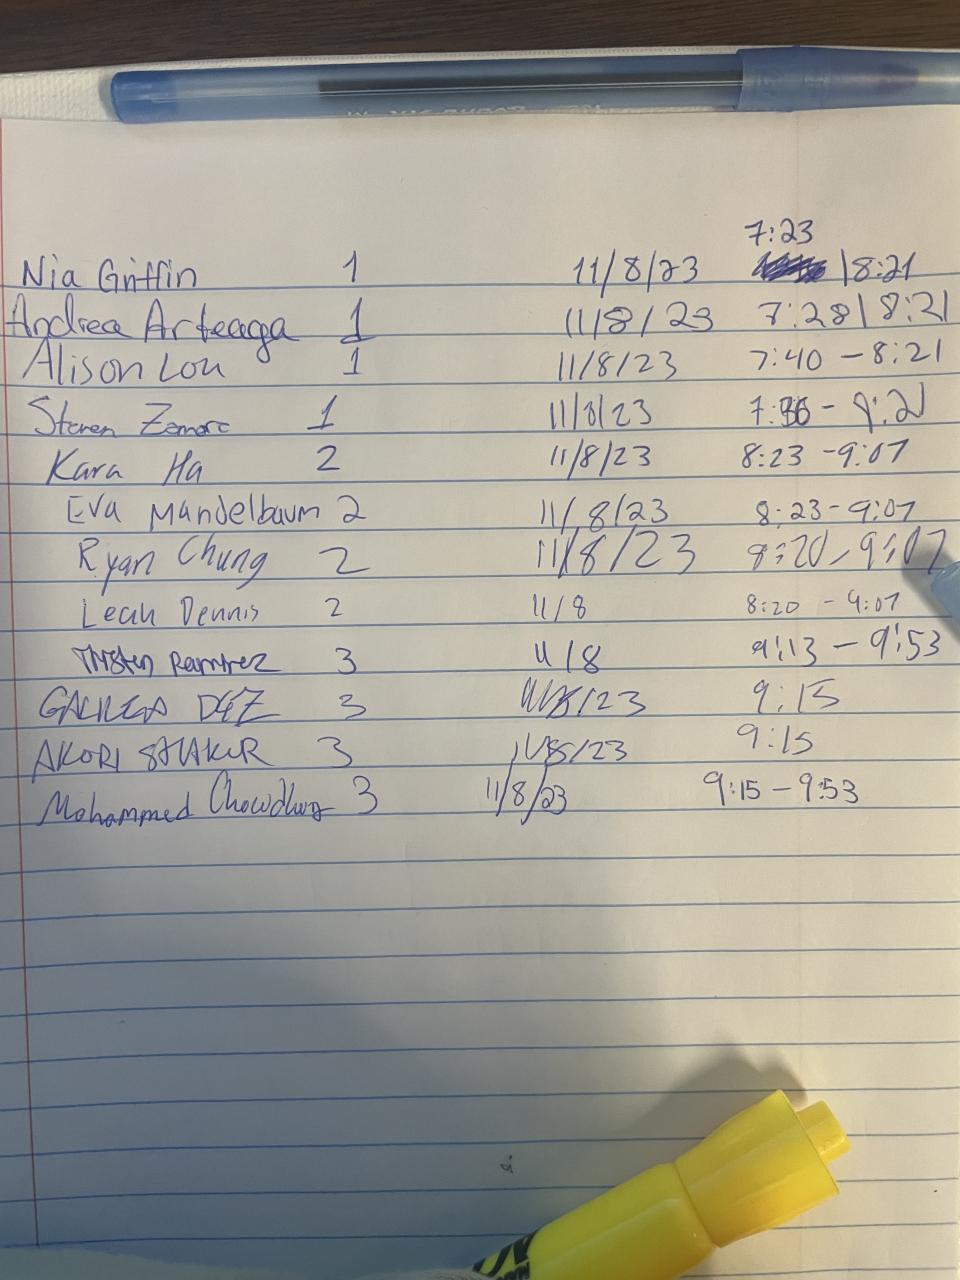 7:23
Nia Griffin 1 11/8/23 | 8:21
Andrea Arteaga 1 11/8/23 7:28 | 8:21
Alison Lou 1 11/8/23 7:40 - 8:21
Steven 1 11/8/23 7:36 - 8:21
Kara Ha 2 11/8/23 8:23 - 9:07
Eva Mandelbaum 2 11/8/23 8:23 - 9:07
Ryan Chung 2 11/8/23 8:20 - 9:07
Leah Dennis 2 11/8 8:20 - 9:07
Tristen Ramirez 3 11/8 9:13 - 9:53
3 11/8/23 9:15
AKORI 3 11/8/23 9:15
Mohammed Chowdhury 3 11/8/23 9:15 - 9:53